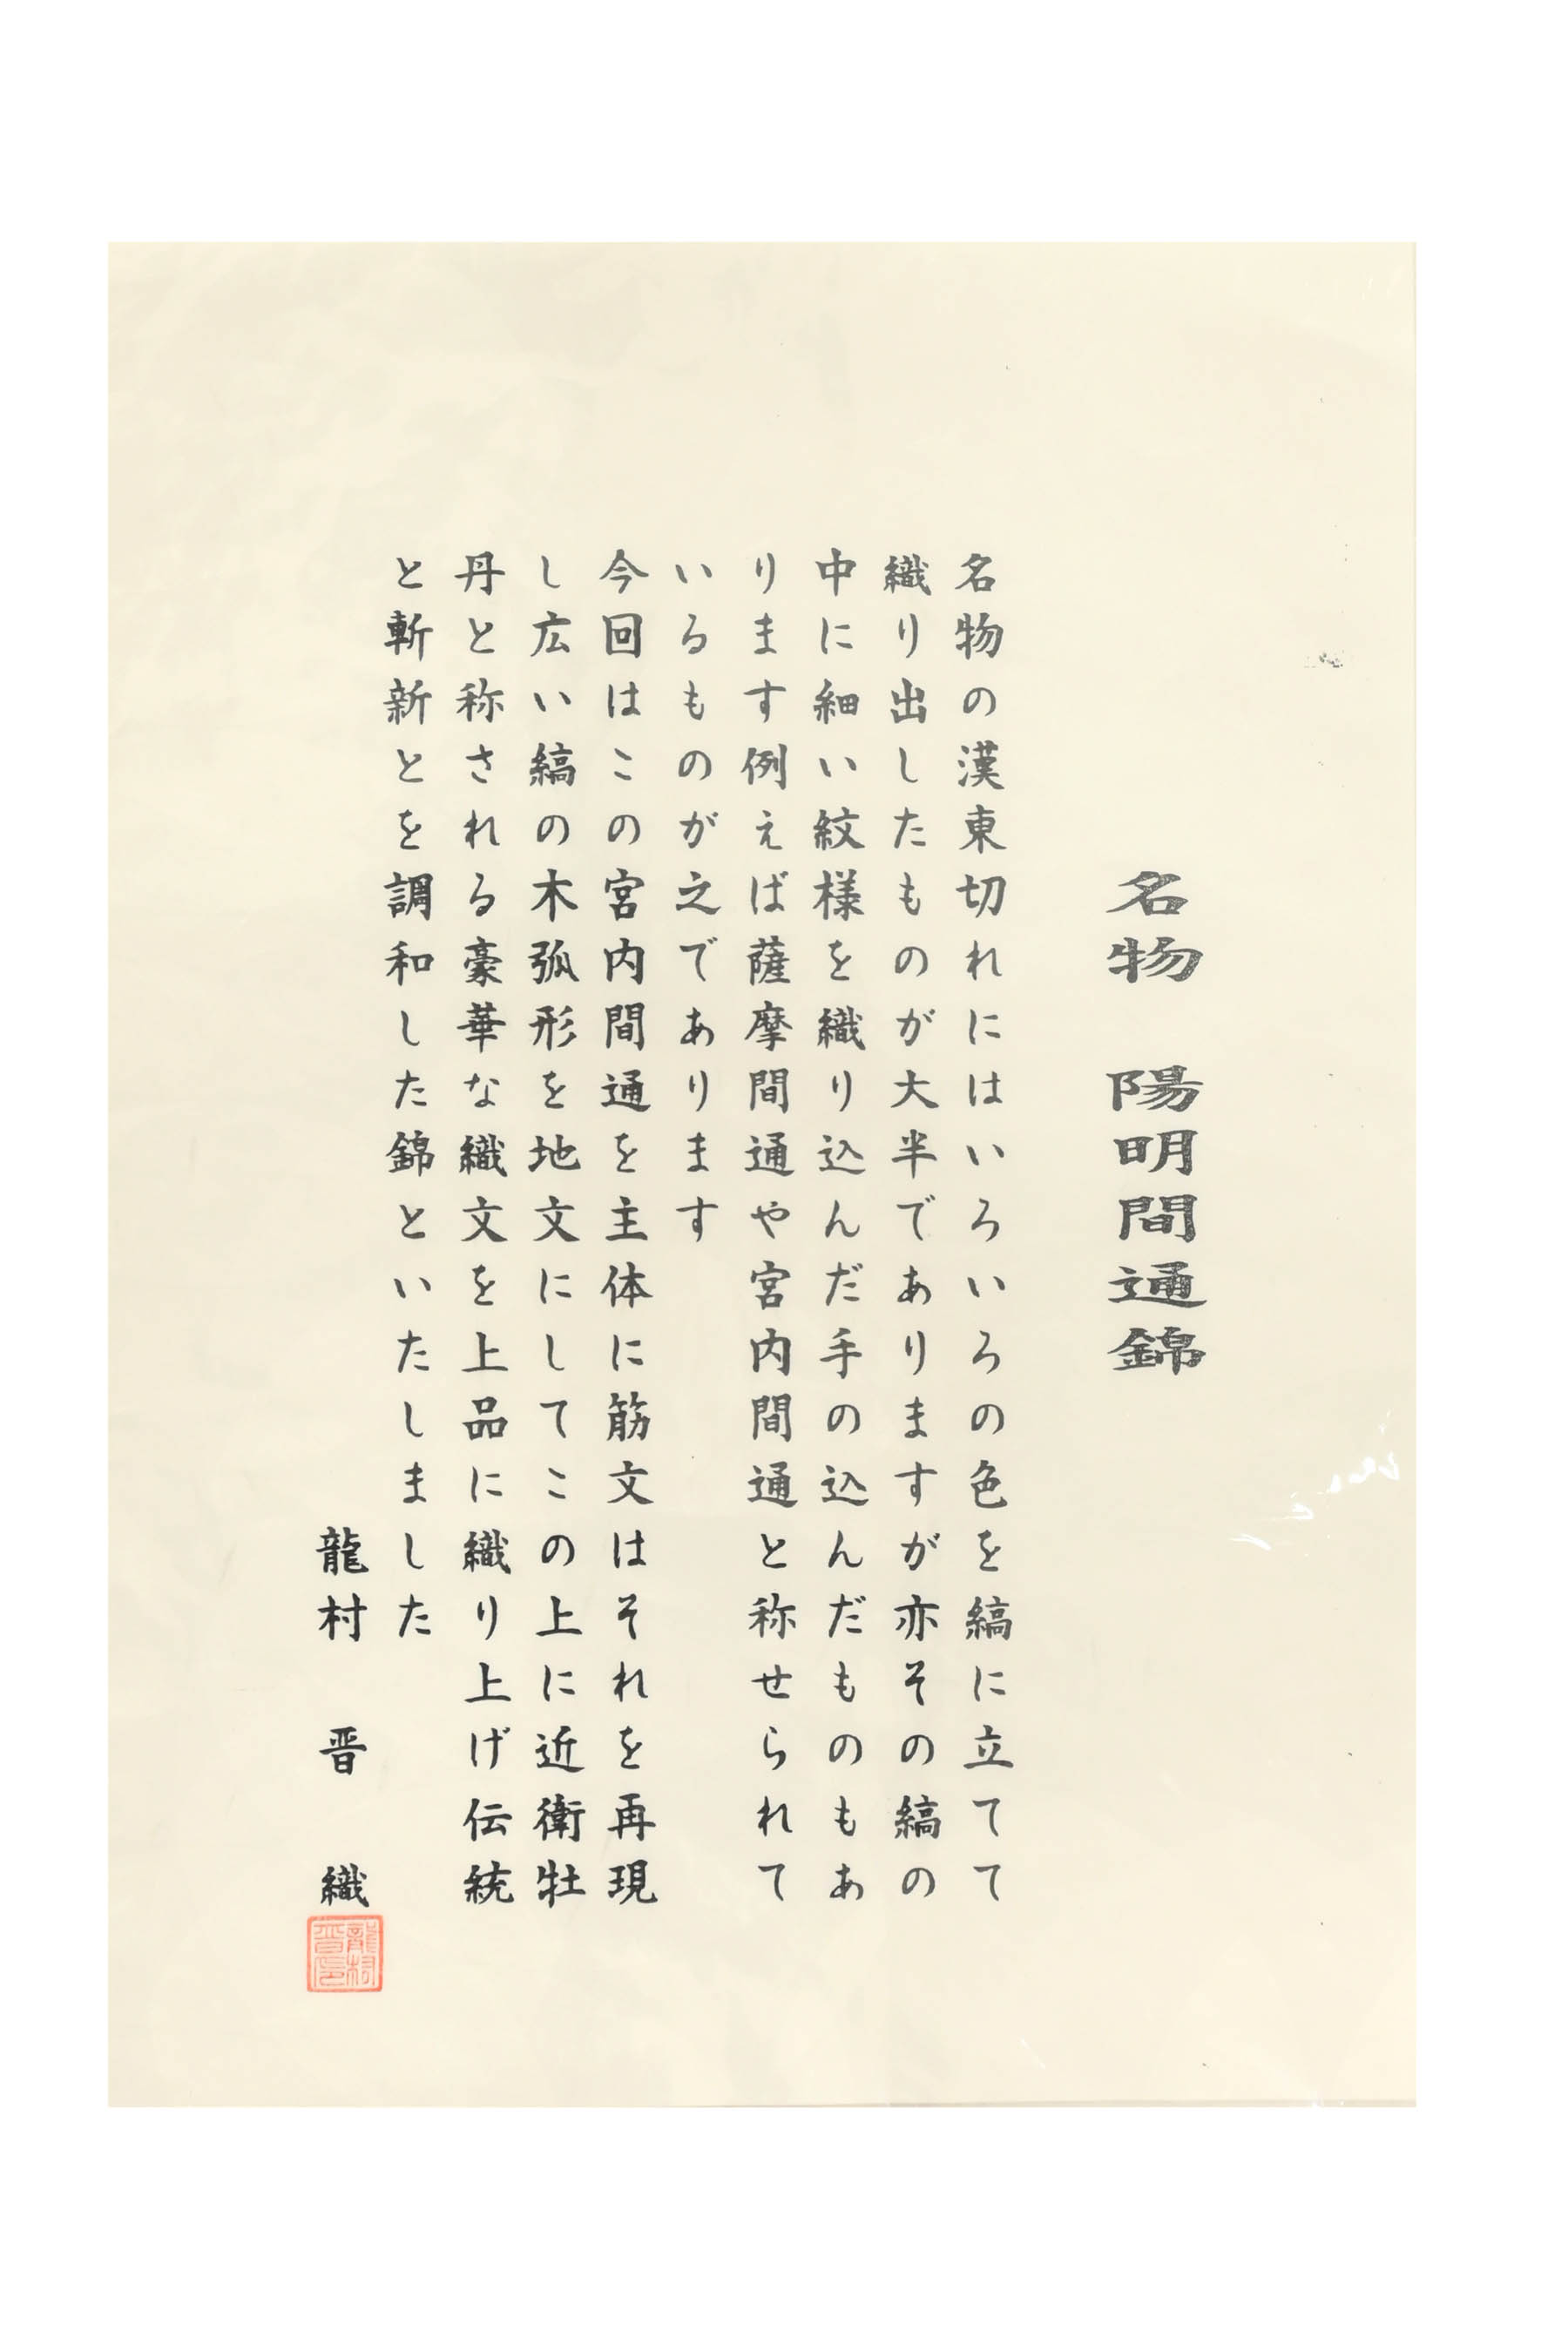 名物　陽明間通錦
名物の漢東切れにはいろいろの色を縞に立てて
織り出したものが大半でありますが亦その縞の
中に細い紋様を織り込んだ手の込んだものもあ
ります例えば薩摩間通や宮内間通と称せられて
いるものが之であります
今回はこの宮内間通を主体に筋文はそれを再現
し広い縞の木弧形を地文にしてこの上に近衛牡
丹と称される豪華な織文を上品に織り上げ伝統
と斬新とを調和した錦といたしました
龍村　晋　織
龍村晋印